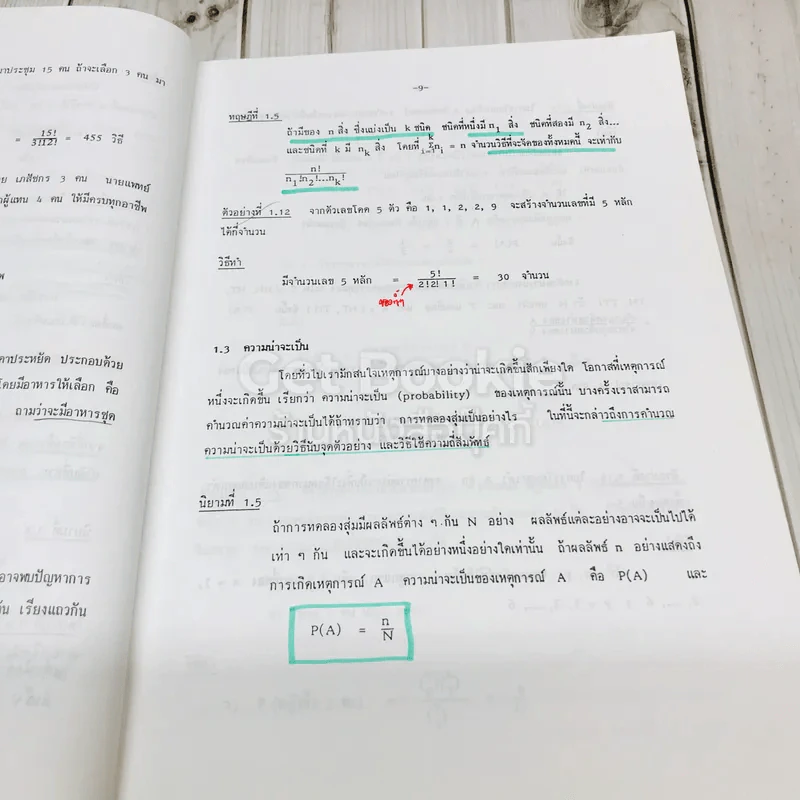 าประชุม 15 คน ถ้าจะเลือก 3 คน มา
= 15!/3!12! = 455 วิธี
ย เภสัชกร 3 คน นายแพทย์
ผู้แทน 4 คน ให้มีครบทุกอาชีพ
พ
คาประหยัด ประกอบด้วย
โดยมีอาหารให้เลือก คือ
ถามว่าจะมีอาหารชุด
อาจพบปัญหาการ
ัน เรียงแถวกัน
-9-
ทฤษฎีที่ 1.5
ถ้ามีของ n สิ่ง ซึ่งแบ่งเป็น k ชนิด ชนิดที่หนึ่งมี n₁ สิ่ง ชนิดที่สองมี n₂ สิ่ง...
และชนิดที่ k มี nₖ สิ่ง โดยที่ Σᵢ₌₁ᵏ nᵢ = n จำนวนวิธีที่จะจัดของทั้งหมดนี้ จะเท่ากับ
n!/n₁!n₂!...nₖ!
ตัวอย่างที่ 1.12 จากตัวเลขโดด 5 ตัว คือ 1, 1, 2, 2, 9 จะสร้างจำนวนเลขที่มี 5 หลัก
ได้กี่จำนวน
วิธีทำ
มีจำนวนเลข 5 หลัก = 5!/2!2!1! = 30 จำนวน
ของซ้ำๆ
1.3 ความน่าจะเป็น
โดยทั่วไปเรามักสนใจเหตุการณ์บางอย่างว่าน่าจะเกิดขึ้นสักเพียงใด โอกาสที่เหตุการณ์
หนึ่งจะเกิดขึ้น เรียกว่า ความน่าจะเป็น (probability) ของเหตุการณ์นั้น บางครั้งเราสามารถ
คำนวณค่าความน่าจะเป็นได้ถ้าทราบว่า การทดลองสุ่มเป็นอย่างไร ในที่นี้จะกล่าวถึงการคำนวณ
ความน่าจะเป็นด้วยวิธีนับจุดตัวอย่าง และวิธีใช้ความถี่สัมพัทธ์
Get Bookie
ร้านหนังสือบุคกี้
นิยามที่ 1.5
ถ้าการทดลองสุ่มมีผลลัพธ์ต่าง ๆ กัน N อย่าง ผลลัพธ์แต่ละอย่างอาจจะเป็นไปได้
เท่า ๆ กัน และจะเกิดขึ้นได้อย่างหนึ่งอย่างใดเท่านั้น ถ้าผลลัพธ์ n อย่างแสดงถึง
การเกิดเหตุการณ์ A ความน่าจะเป็นของเหตุการณ์ A คือ P(A) และ
P(A) = n/N